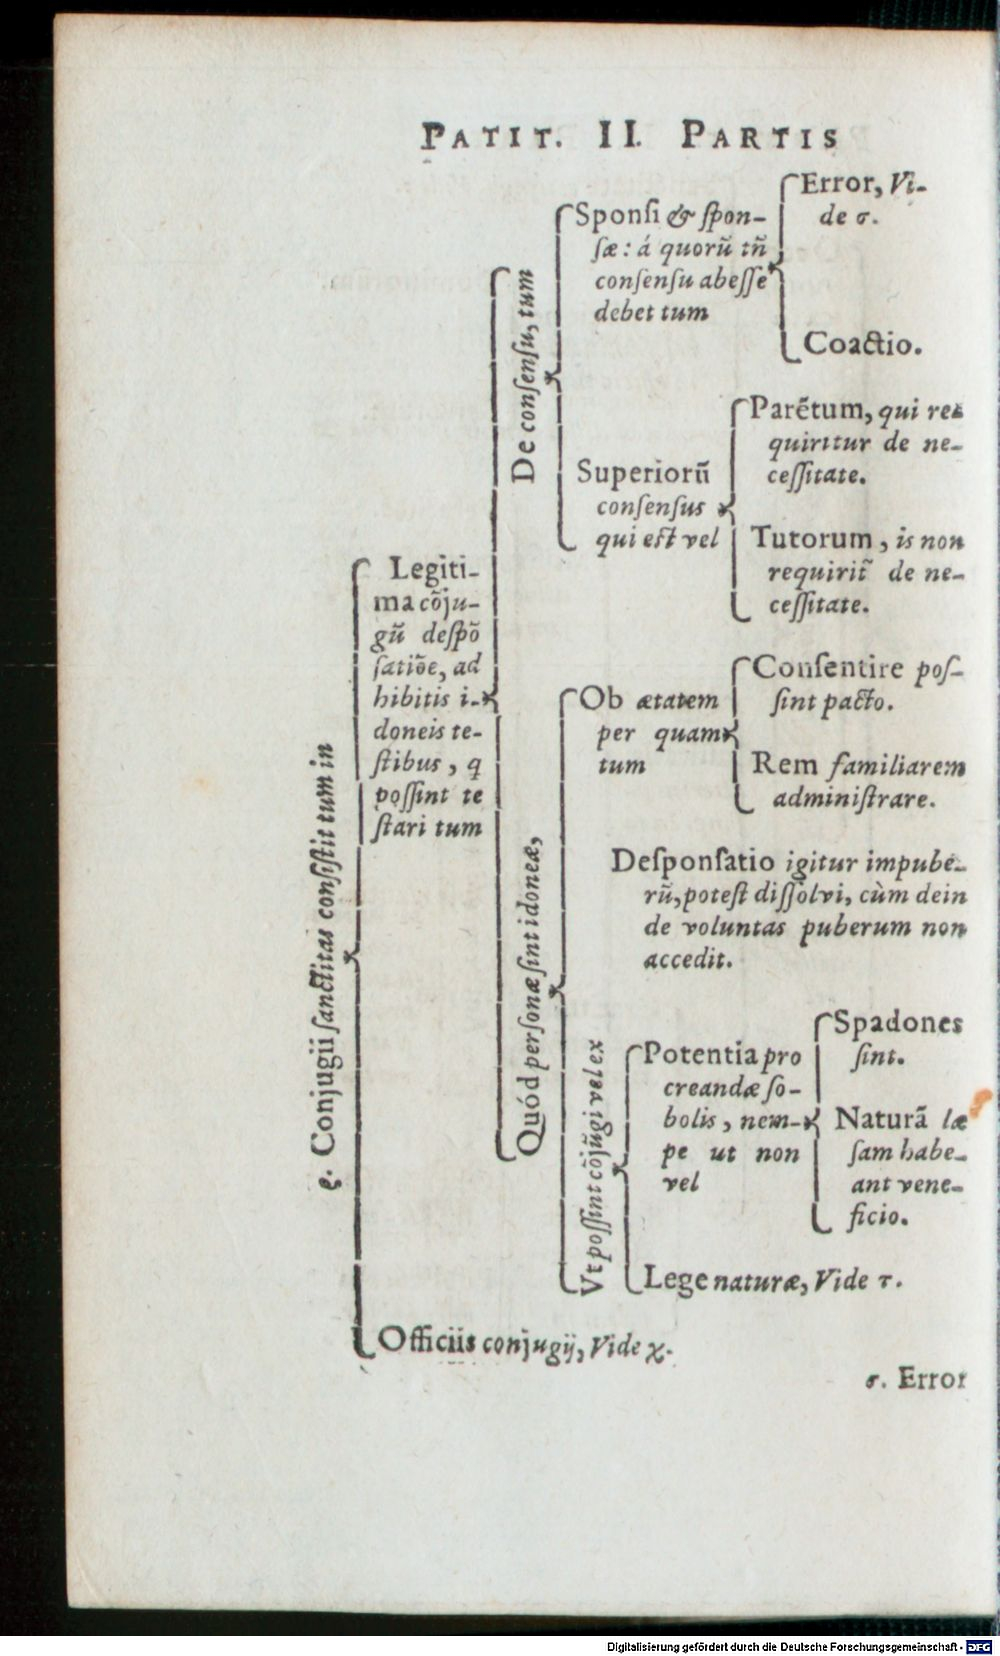 PATIT. II. PARTIS
ϱ. Conjugii ſanctitas conſiſtit tum in
Legiti-
ma cõju-
gũ deſpõ
ſatiõe, ad
hibitis i-
doneis te-
ſtibus, q
poſſint te
ſtari tum
De conſenſu, tum
Sponſi & ſpon-
ſæ: á quorũ tñ
conſenſu abeſſe
debet tum
Error, Vi-
de σ.
Coactio.
Superiorũ
conſenſus
qui eſt vel
Parẽtum, qui re-
quirũtur de ne-
ceſſitate.
Tutorum, is non
requirit̃ de ne-
ceſſitate.
Quód perſonæ ſint idoneæ,
Ob ætatem
per quam
tum
Conſentire poſ-
ſint pacto.
Rem familiarem
adminiſtrare.
Deſponſatio igitur impube-
rũ, poteſt diſſolvi, cùm dein
de voluntas puberum non
accedit.
Vt poſſint cõjũgi vel ex
Potentia pro
creandæ ſo-
bolis, nem-
pe ut non
vel
Spadones
ſint.
Naturã læ
ſam habe-
ant vene-
ficio.
Lege naturæ, Vide τ.
Officiis conjugij, Vide χ.
σ. Error
Digitalisierung gefördert durch die Deutsche Forschungsgemeinschaft - DFG